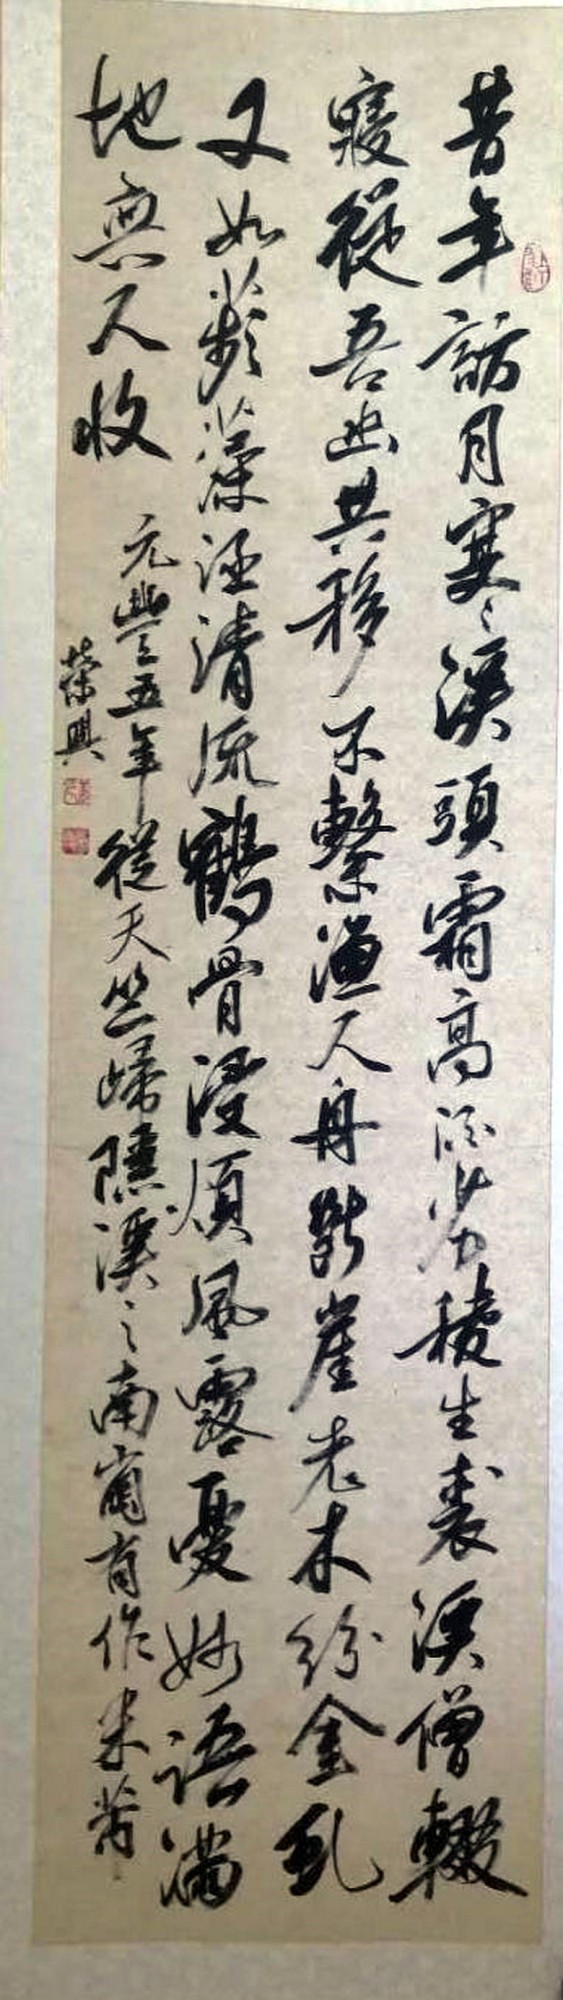 昔年訪月寒〻溪頭霜高酒劣稜生裘溪僧輟
寢從吾幽共移不繫漁人舟斷崖老木紛金虬
又如蘋藻涇清流鶴骨浸須風露憂妙語滿
地無人收
元豐五年從天竺歸隱溪之南崗有作米芾
榮興